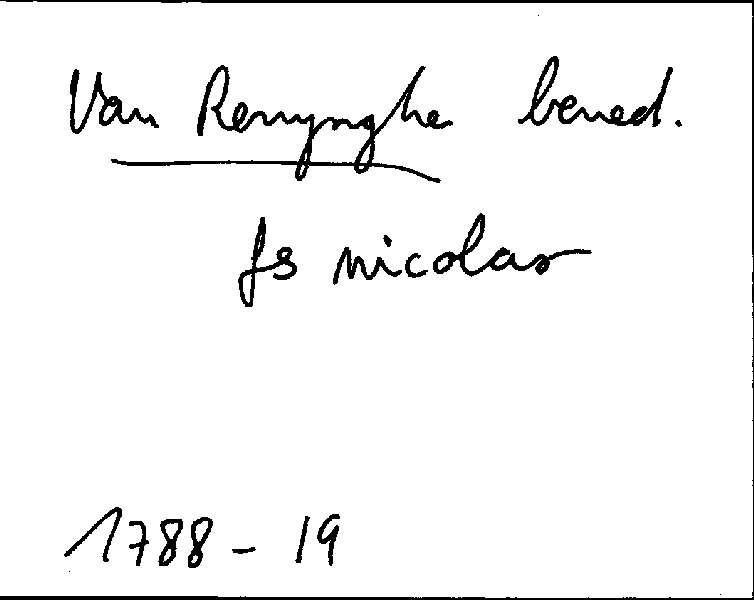 Van Renynghe bened.
fs nicolas
1788 - 19